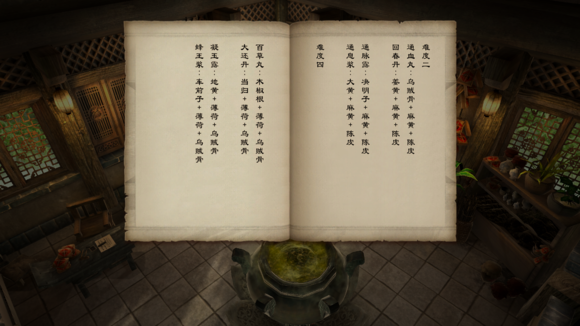 难度二
通血丸：乌贼骨+麻黄+陈皮
回春丹：姜黄+麻黄+陈皮
通脉露：决明子+麻黄+陈皮
通息浆：大黄+麻黄+陈皮
难度四
百草丸：木椒根+薄荷+乌贼骨
大还丹：当归+薄荷+乌贼骨
凝玉露：地黄+薄荷+乌贼骨
蜂王浆：车前子+薄荷+乌贼骨